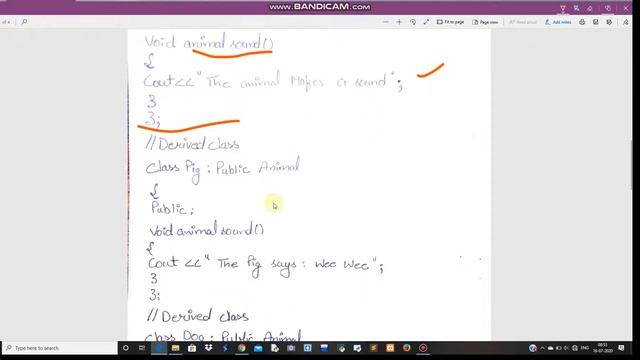 WWW.BANDICAM.COM
of 4
Fit to page
Page view
Read aloud
Add notes
Void animal sound()
{
Cout<<"The animal Makes a sound";
}
};
//Derived class
Class Pig : Public Animal
{
Public:
Void animal sound()
{
Cout <<"The Pig says: wee wee";
}
};
//Derived class
Class Dog : Public Animal
Type here to search
ENG
08:51
16-07-2020